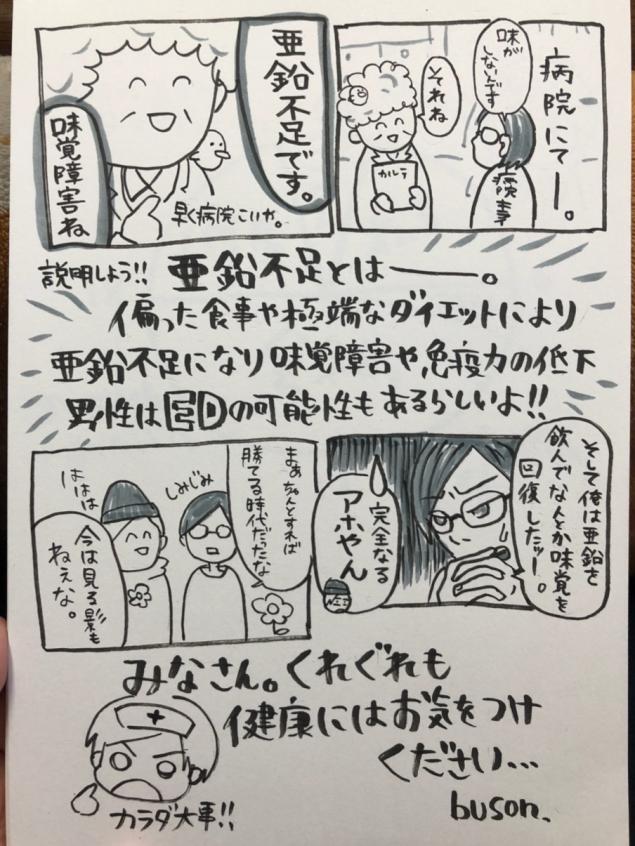 病院にてー。
味が
しないんです
それね
カルテ
亜鉛不足です。
味覚障害ね
早く病院こいや。
説明しよう!! 亜鉛不足とは――。
偏った食事や極端なダイエットにより
亜鉛不足になり味覚障害や、免疫力の低下
男性はEDの可能性もあるらしいよ!!
そして俺は亜鉛を
飲んでなんとか味覚を
回復したッー。
完全なる
アホやん
まぁちゃんとすれば
勝てる時代だったな
しみじみ
ははは
今は見る影も
ねぇな。
みなさん。くれぐれも
健康にはお気をつけ
ください…
カラダ大事!!
buson.